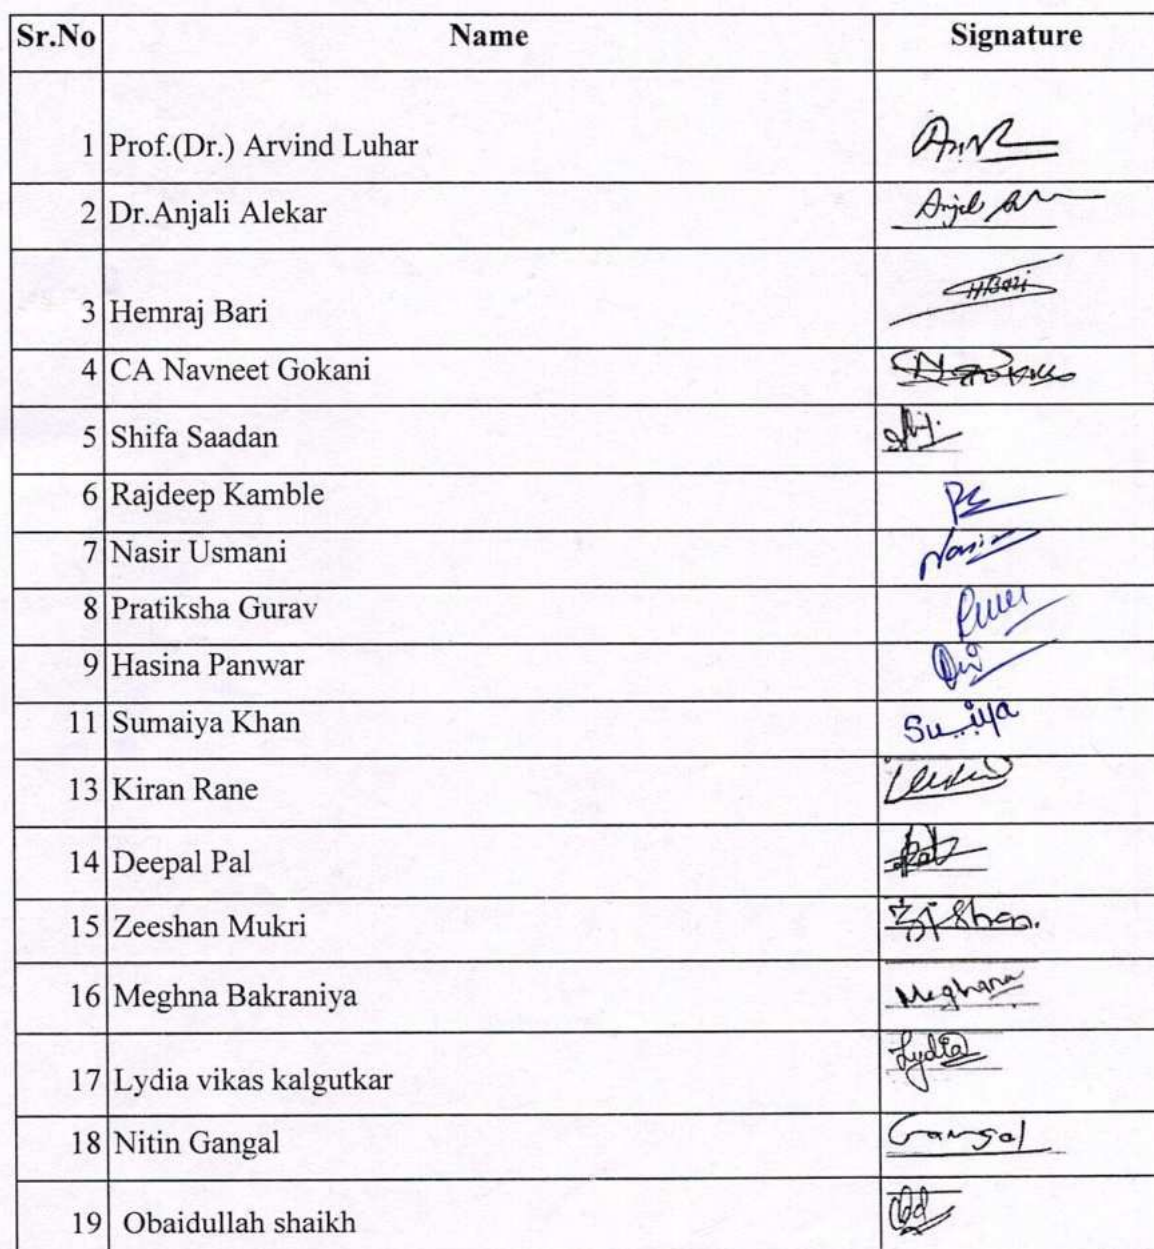 Sr.No Name Signature
1 Prof.(Dr.) Arvind Luhar
2 Dr.Anjali Alekar
3 Hemraj Bari HBari
4 CA Navneet Gokani
5 Shifa Saadan
6 Rajdeep Kamble
7 Nasir Usmani
8 Pratiksha Gurav
9 Hasina Panwar
11 Sumaiya Khan
13 Kiran Rane
14 Deepal Pal
15 Zeeshan Mukri
16 Meghna Bakraniya Meghana
17 Lydia vikas kalgutkar Lydia
18 Nitin Gangal Gangal
19 Obaidullah shaikh